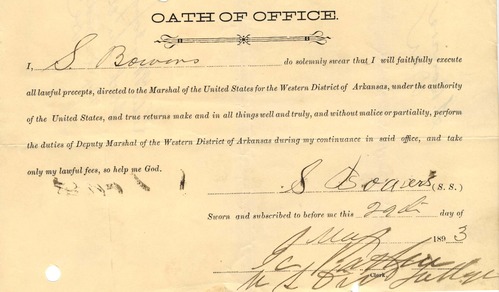 OATH OF OFFICE.
I, S. Bowers do solemnly swear that I will faithfully execute
all lawful precepts, directed to the Marshal of the United States for the Western District of Arkansas, under the authority
of the United States, and true returns make and in all things well and truly, and without malice or partiality, perform
the duties of Deputy Marshal of the Western District of Arkansas during my continuance in said office, and take
only my lawful fees, so help me God.
S Bowers (S. S.)
Sworn and subscribed to before me this 29th day of
1893
Clerk.
Judge